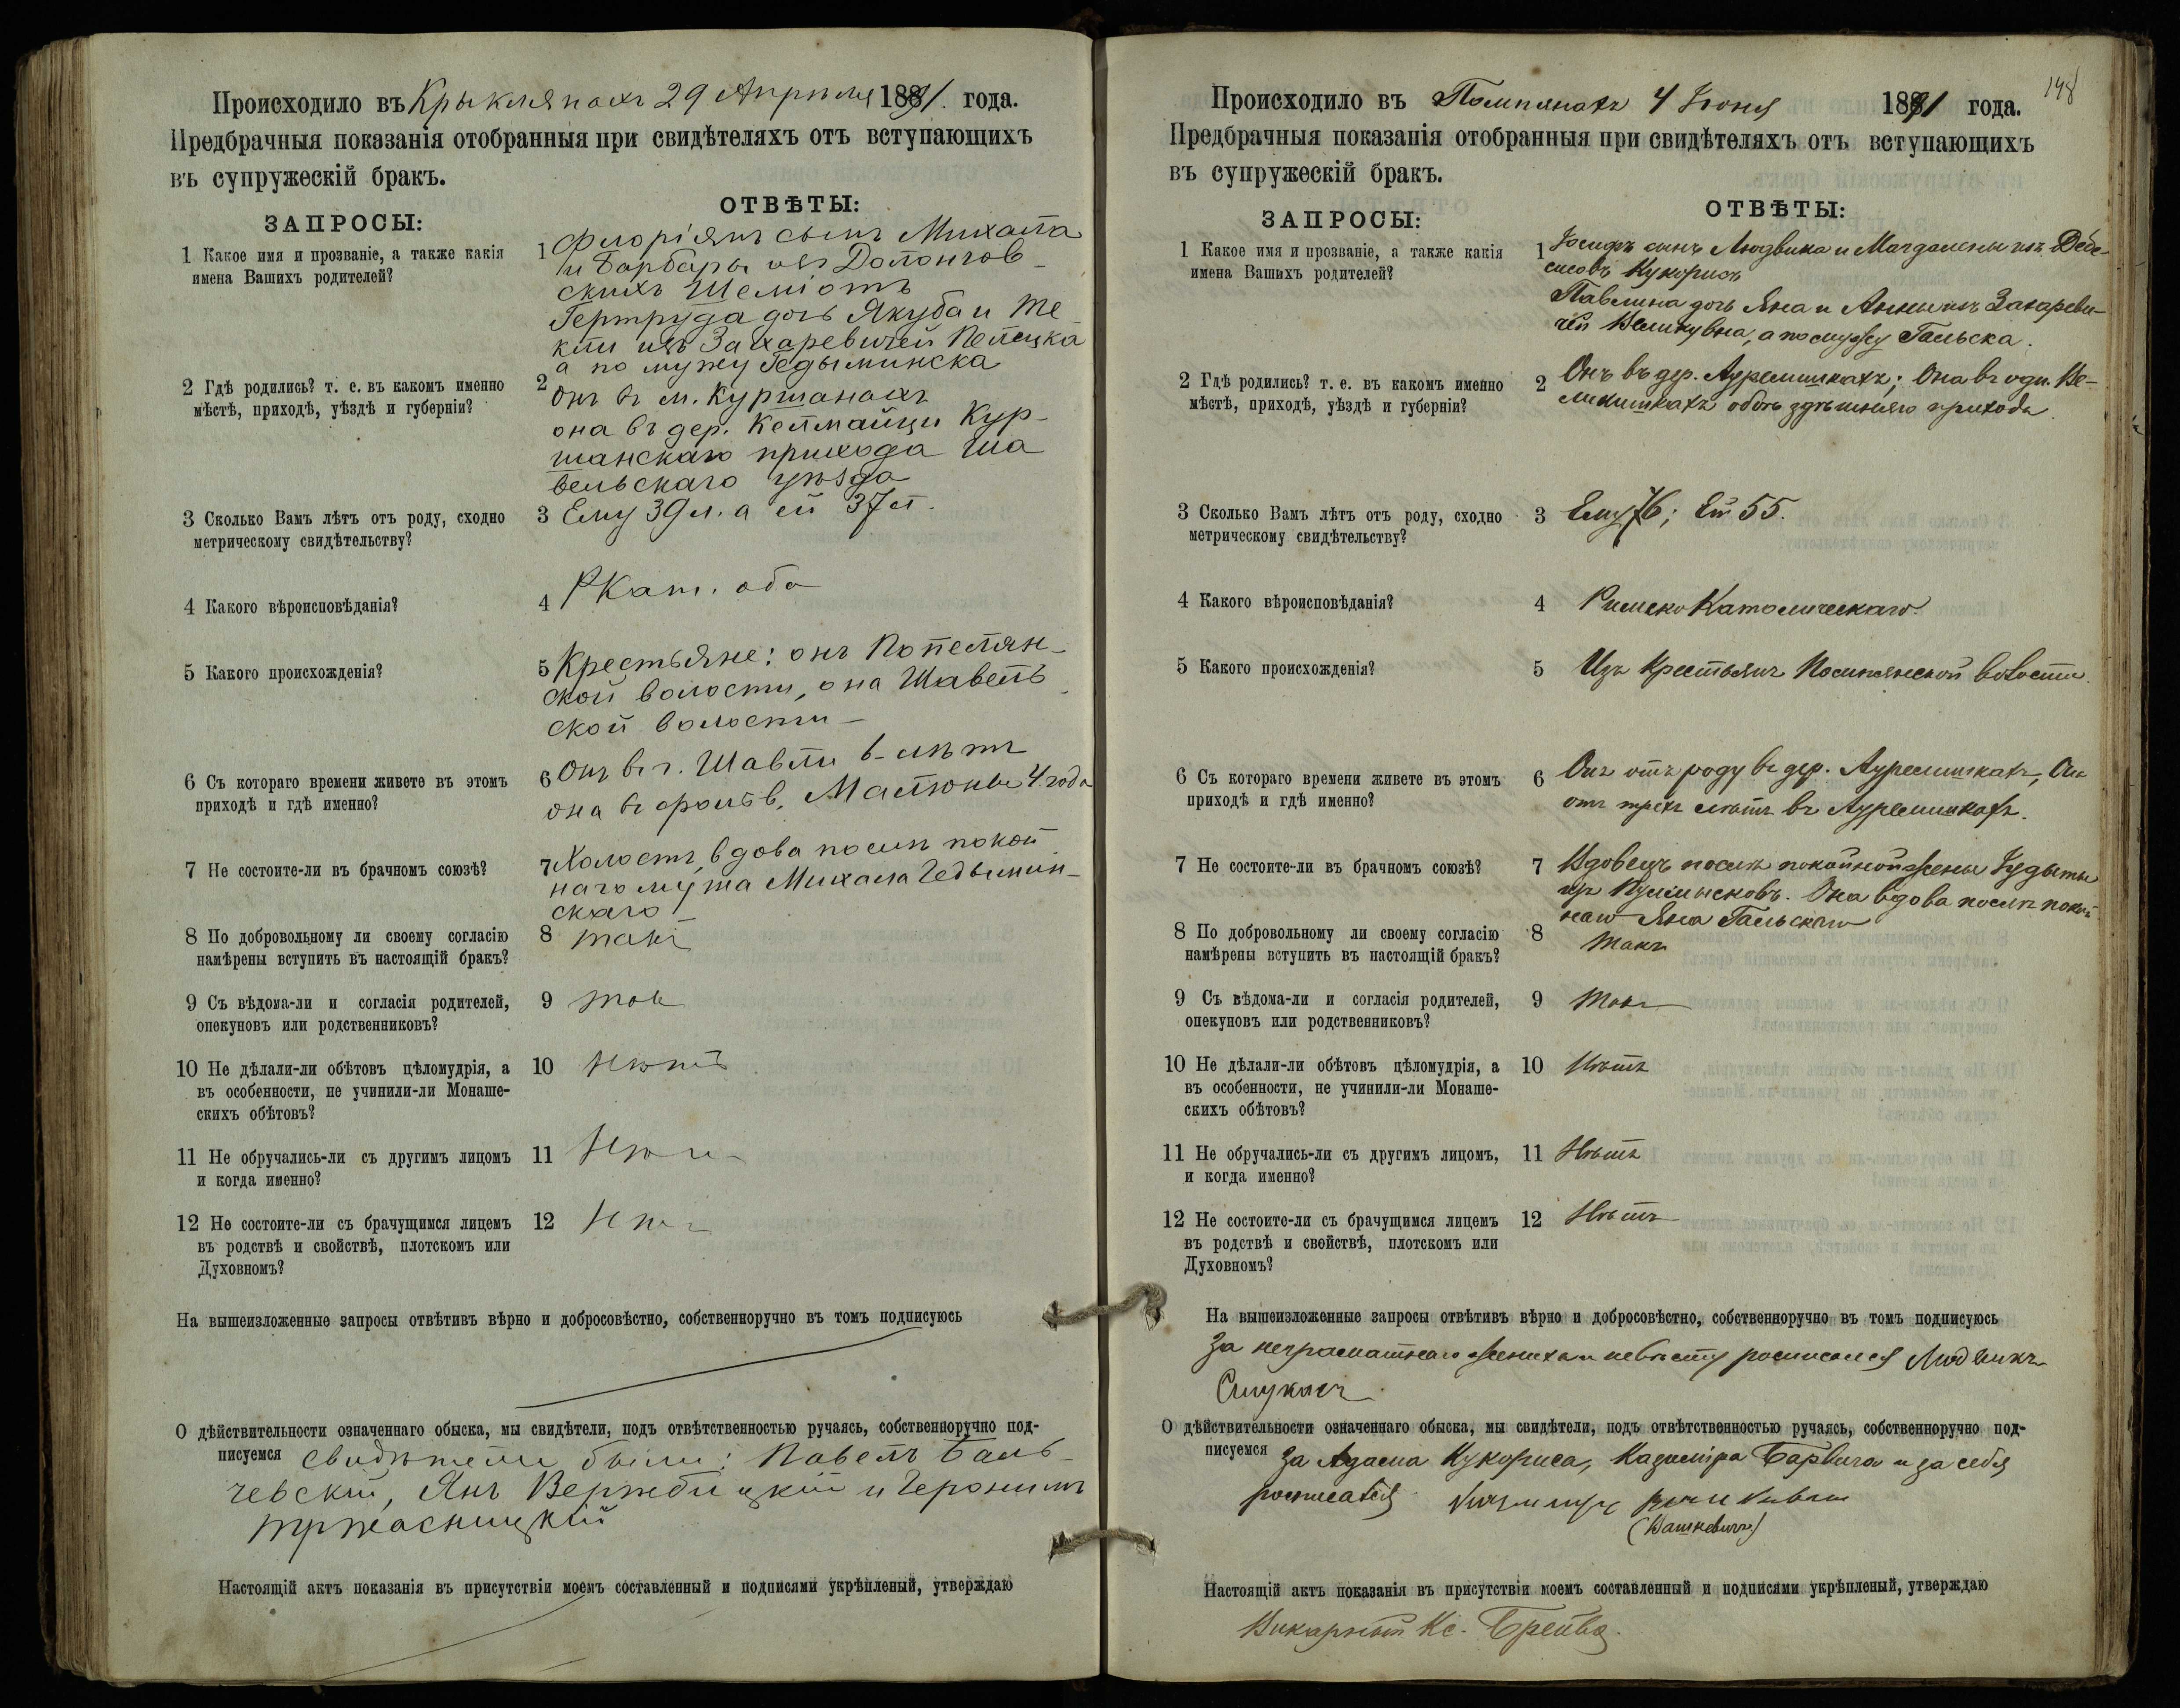 Происходило въ Крыкляпахъ 29 Апрѣля 1891. года.
Предбрачныя показанія отобранныя при свидѣтеляхъ отъ вступающихъ
въ супружескій бракъ.
ЗАПРОСЫ:
ОТВѢТЫ:
1 Какое имя и прозваніе, а также какія
имена Вашихъ родителей?
1 Флоріянъ сынъ Михаила
и Барбары изъ Долонгов-
скихъ Шеміотъ
Гертруда дочь Якуба и Те-
кли изъ Захаревичей
а по мужу Гедыминска
2 Гдѣ родились? т. е. въ какомъ именно
мѣстѣ, приходѣ, уѣздѣ и губерніи?
2 Онъ въ м. Куршанахъ
она въ дер. Колмайци Кур-
шанскаго прихода Ша
вельскаго уѣзда
3 Сколько Вамъ лѣтъ отъ роду, сходно
метрическому свидѣтельству?
3 Ему 39 л. а ей 37 л.
4 Какого вѣроисповѣданія?
4 РКат. оба
5 Какого происхожденія?
5 Крестьяне: онъ Попелян-
ской волости, она Шавель-
ской волости –
6 Съ котораго времени живете въ этомъ
приходѣ и гдѣ именно?
6 Онъ въ г. Шавли 6 лѣтъ
она въ фольв. 4 года
7 Не состоите-ли въ брачномъ союзѣ?
7 Холостъ, вдова послѣ покой
наго мужа Михала Гедымин-
скаго
8 По добровольному ли своему согласію
намѣрены вступить въ настоящій бракъ?
8 такъ
9 Съ вѣдома-ли и согласія родителей,
опекуновъ или родственниковъ?
9 такъ
10 Не дѣлали-ли обѣтовъ цѣломудрія, а
въ особенности, не учинили-ли Монаше-
скихъ обѣтовъ?
10 нѣтъ
11 Не обручались-ли съ другимъ лицомъ
и когда именно?
11 нѣтъ
12 Не состоите-ли съ брачущимся лицемъ
въ родствѣ и свойствѣ, плотскомъ или
Духовномъ?
12 нѣтъ
На вышеизложенные запросы отвѣтивъ вѣрно и добросовѣстно, собственноручно въ томъ подписуюсь
О дѣйствительности означеннаго обыска, мы свидѣтели, подъ отвѣтственностью ручаясь, собственноручно под-
писуемся свидѣтели были: Павелъ Баль-
чевскій, Янъ Вержбицкій и Геронимъ
Тржасницкій
Настоящій актъ показанія въ присутствіи моемъ составленный и подписями укрѣпленый, утверждаю
148
Происходило въ Помпянахъ 4 Іюня 1891 года.
Предбрачныя показанія отобранныя при свидѣтеляхъ отъ вступающихъ
въ супружескій бракъ.
ЗАПРОСЫ:
ОТВѢТЫ:
1 Какое имя и прозваніе, а также какія
имена Вашихъ родителей?
1 Іосифъ сынъ Людвика и Магдалены изъ Дебе-
сисовъ Кукорисъ
Павлина дочь Яна и Анны изъ Захареви-
чей Великувна, а по мужу Гальска.
2 Гдѣ родились? т. е. въ какомъ именно
мѣстѣ, приходѣ, уѣздѣ и губерніи?
2 Онъ въ дер. Аурелишкахъ; Она въ одн. Ве-
ликишкахъ оботь здѣшняго прихода
3 Сколько Вамъ лѣтъ отъ роду, сходно
метрическому свидѣтельству?
3 Ему 76; Ей 55.
4 Какого вѣроисповѣданія?
4 Римско Католическаго.
5 Какого происхожденія?
5 Изъ Крестьянъ Помпянской волости.
6 Съ котораго времени живете въ этомъ
приходѣ и гдѣ именно?
6 Онъ отъ роду въ дер. Аурелишкахъ, Она
отъ трехъ лѣтъ въ Аурелишкахъ.
7 Не состоите-ли въ брачномъ союзѣ?
7 Вдовецъ послѣ покойной жены Іудыты
изъ. Она вдова послѣ покой-
наго Яна Гальскаго
8 По добровольному ли своему согласію
намѣрены вступить въ настоящій бракъ?
8 Такъ
9 Съ вѣдома-ли и согласія родителей,
опекуновъ или родственниковъ?
9 Такъ
10 Не дѣлали-ли обѣтовъ цѣломудрія, а
въ особенности, не учинили-ли Монаше-
скихъ обѣтовъ?
10 Нѣтъ
11 Не обручались-ли съ другимъ лицомъ,
и когда именно?
11 Нѣтъ
12 Не состоите-ли съ брачущимся лицемъ
въ родствѣ и свойствѣ, плотскомъ или
Духовномъ?
12 Нѣтъ
На вышеизложенные запросы отвѣтивъ вѣрно и добросовѣстно, собственноручно въ томъ подписуюсь
За неграматнаго жениха и невѣсту росписался Людвикъ
О дѣйствительности означеннаго обыска, мы свидѣтели, подъ отвѣтственностью ручаясь, собственноручно под-
писуемся За Адама Кукориса, Казиміра Барвича и за себя
росписался
(Вашкевичъ)
Настоящій актъ показанія въ присутствіи моемъ составленный и подписями укрѣпленый, утверждаю
Викарный Кс. Брейва.